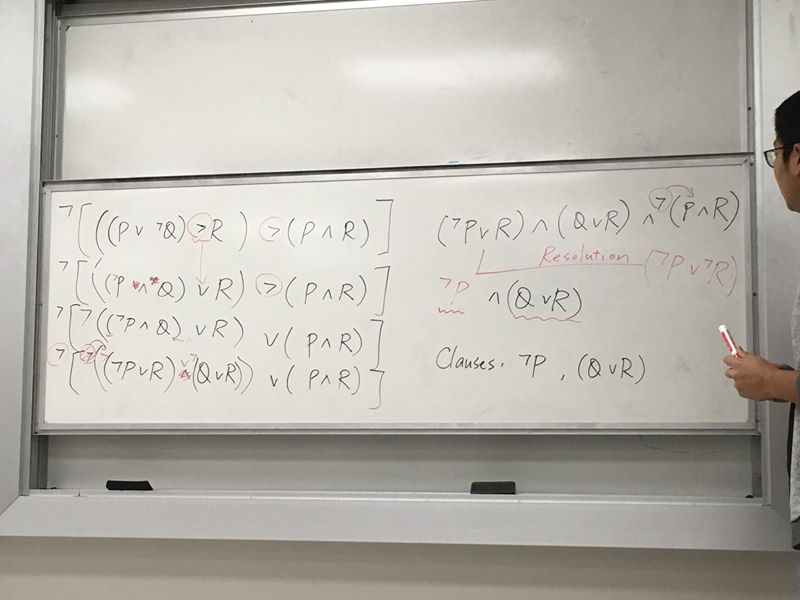 ¬[(((P ∨ ¬Q) > R) > (P ∧ R)]
¬[((¬P ∧ Q) ∨ R) > (P ∧ R)]
¬[¬((¬P ∧ Q) ∨ R) ∨ (P ∧ R)]
¬[¬((¬P ∨ R) ∧ (Q ∨ R)) ∨ (P ∧ R)]
(¬P ∨ R) ∧ (Q ∨ R) ∧ ¬(P ∧ R)
Resolution (¬P ∨ ¬R)
¬P ∧ (Q ∨ R)
Clauses. ¬P , (Q ∨ R)